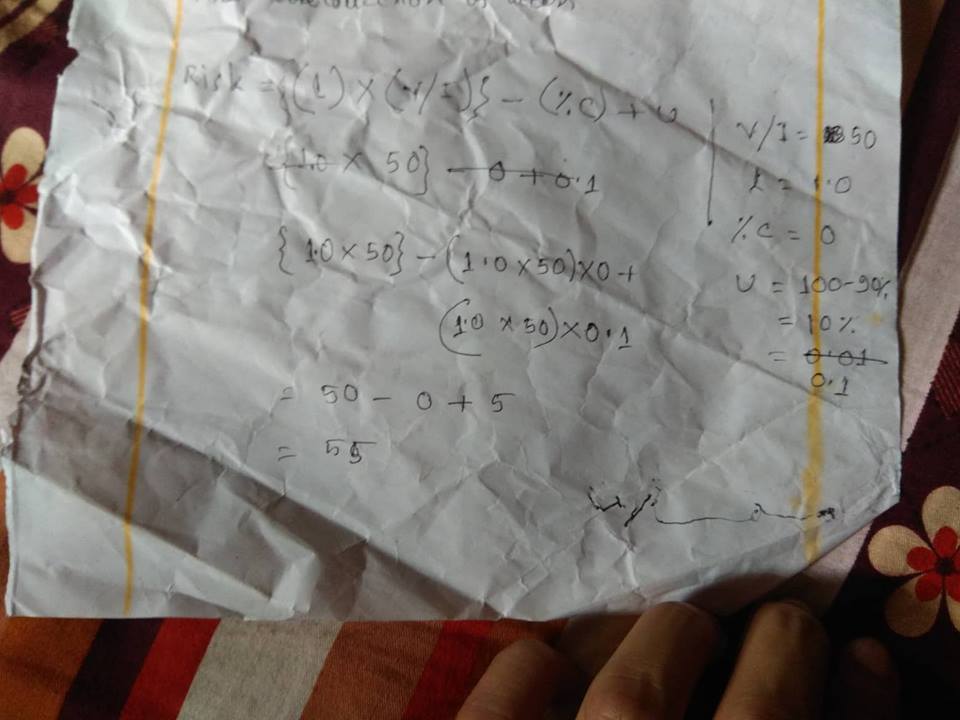 Risk = {(1) × (V/I)} - (%C) + U
{1.0 × 50} - 0 + 0.1
{1.0 × 50} - (1.0 × 50) × 0 +
(1.0 × 50) × 0.1
= 50 - 0 + 5
= 55
V/I = 50
L = 1.0
%C = 0
U = 100-90%
= 10%
= 0.01
0.1